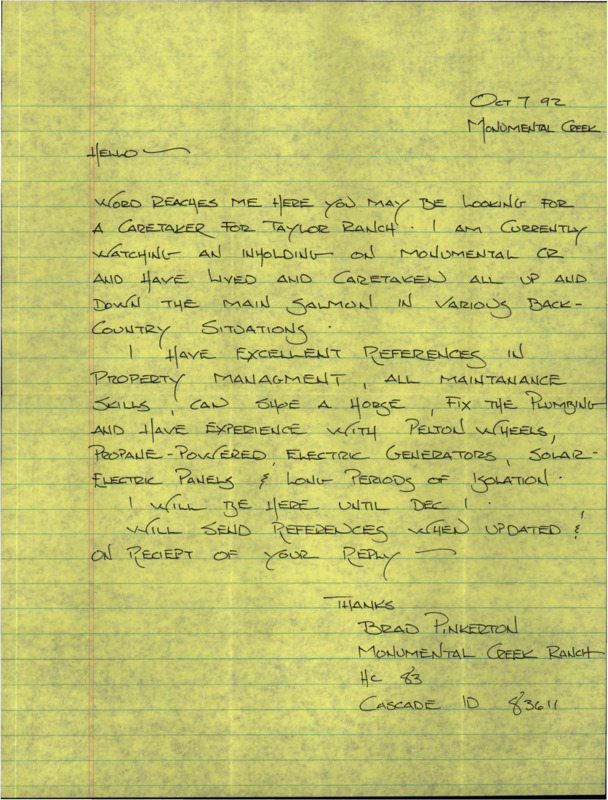 OCT 7 92
MONUMENTAL CREEK
HELLO —
WORD REACHES ME HERE YOU MAY BE LOOKING FOR
A CARETAKER FOR TAYLOR RANCH. I AM CURRENTLY
WATCHING AN INHOLDING ON MONUMENTAL CR
AND HAVE LIVED AND CARETAKEN ALL UP AND
DOWN THE MAIN SALMON IN VARIOUS BACK-
COUNTRY SITUATIONS.
I HAVE EXCELLENT REFERENCES IN
PROPERTY MANAGMENT, ALL MAINTANANCE
SKILLS, CAN SHOE A HORSE, FIX THE PLUMBING
AND HAVE EXPERIENCE WITH PELTON WHEELS,
PROPANE-POWERED ELECTRIC GENERATORS, SOLAR-
ELECTRIC PANELS & LONG PERIODS OF ISOLATION.
I WILL BE HERE UNTIL DEC 1.
WILL SEND REFERENCES WHEN UPDATED &
ON RECIEPT OF YOUR REPLY —
THANKS
BRAD PINKERTON
MONUMENTAL CREEK RANCH
HC 83
CASCADE ID 83611